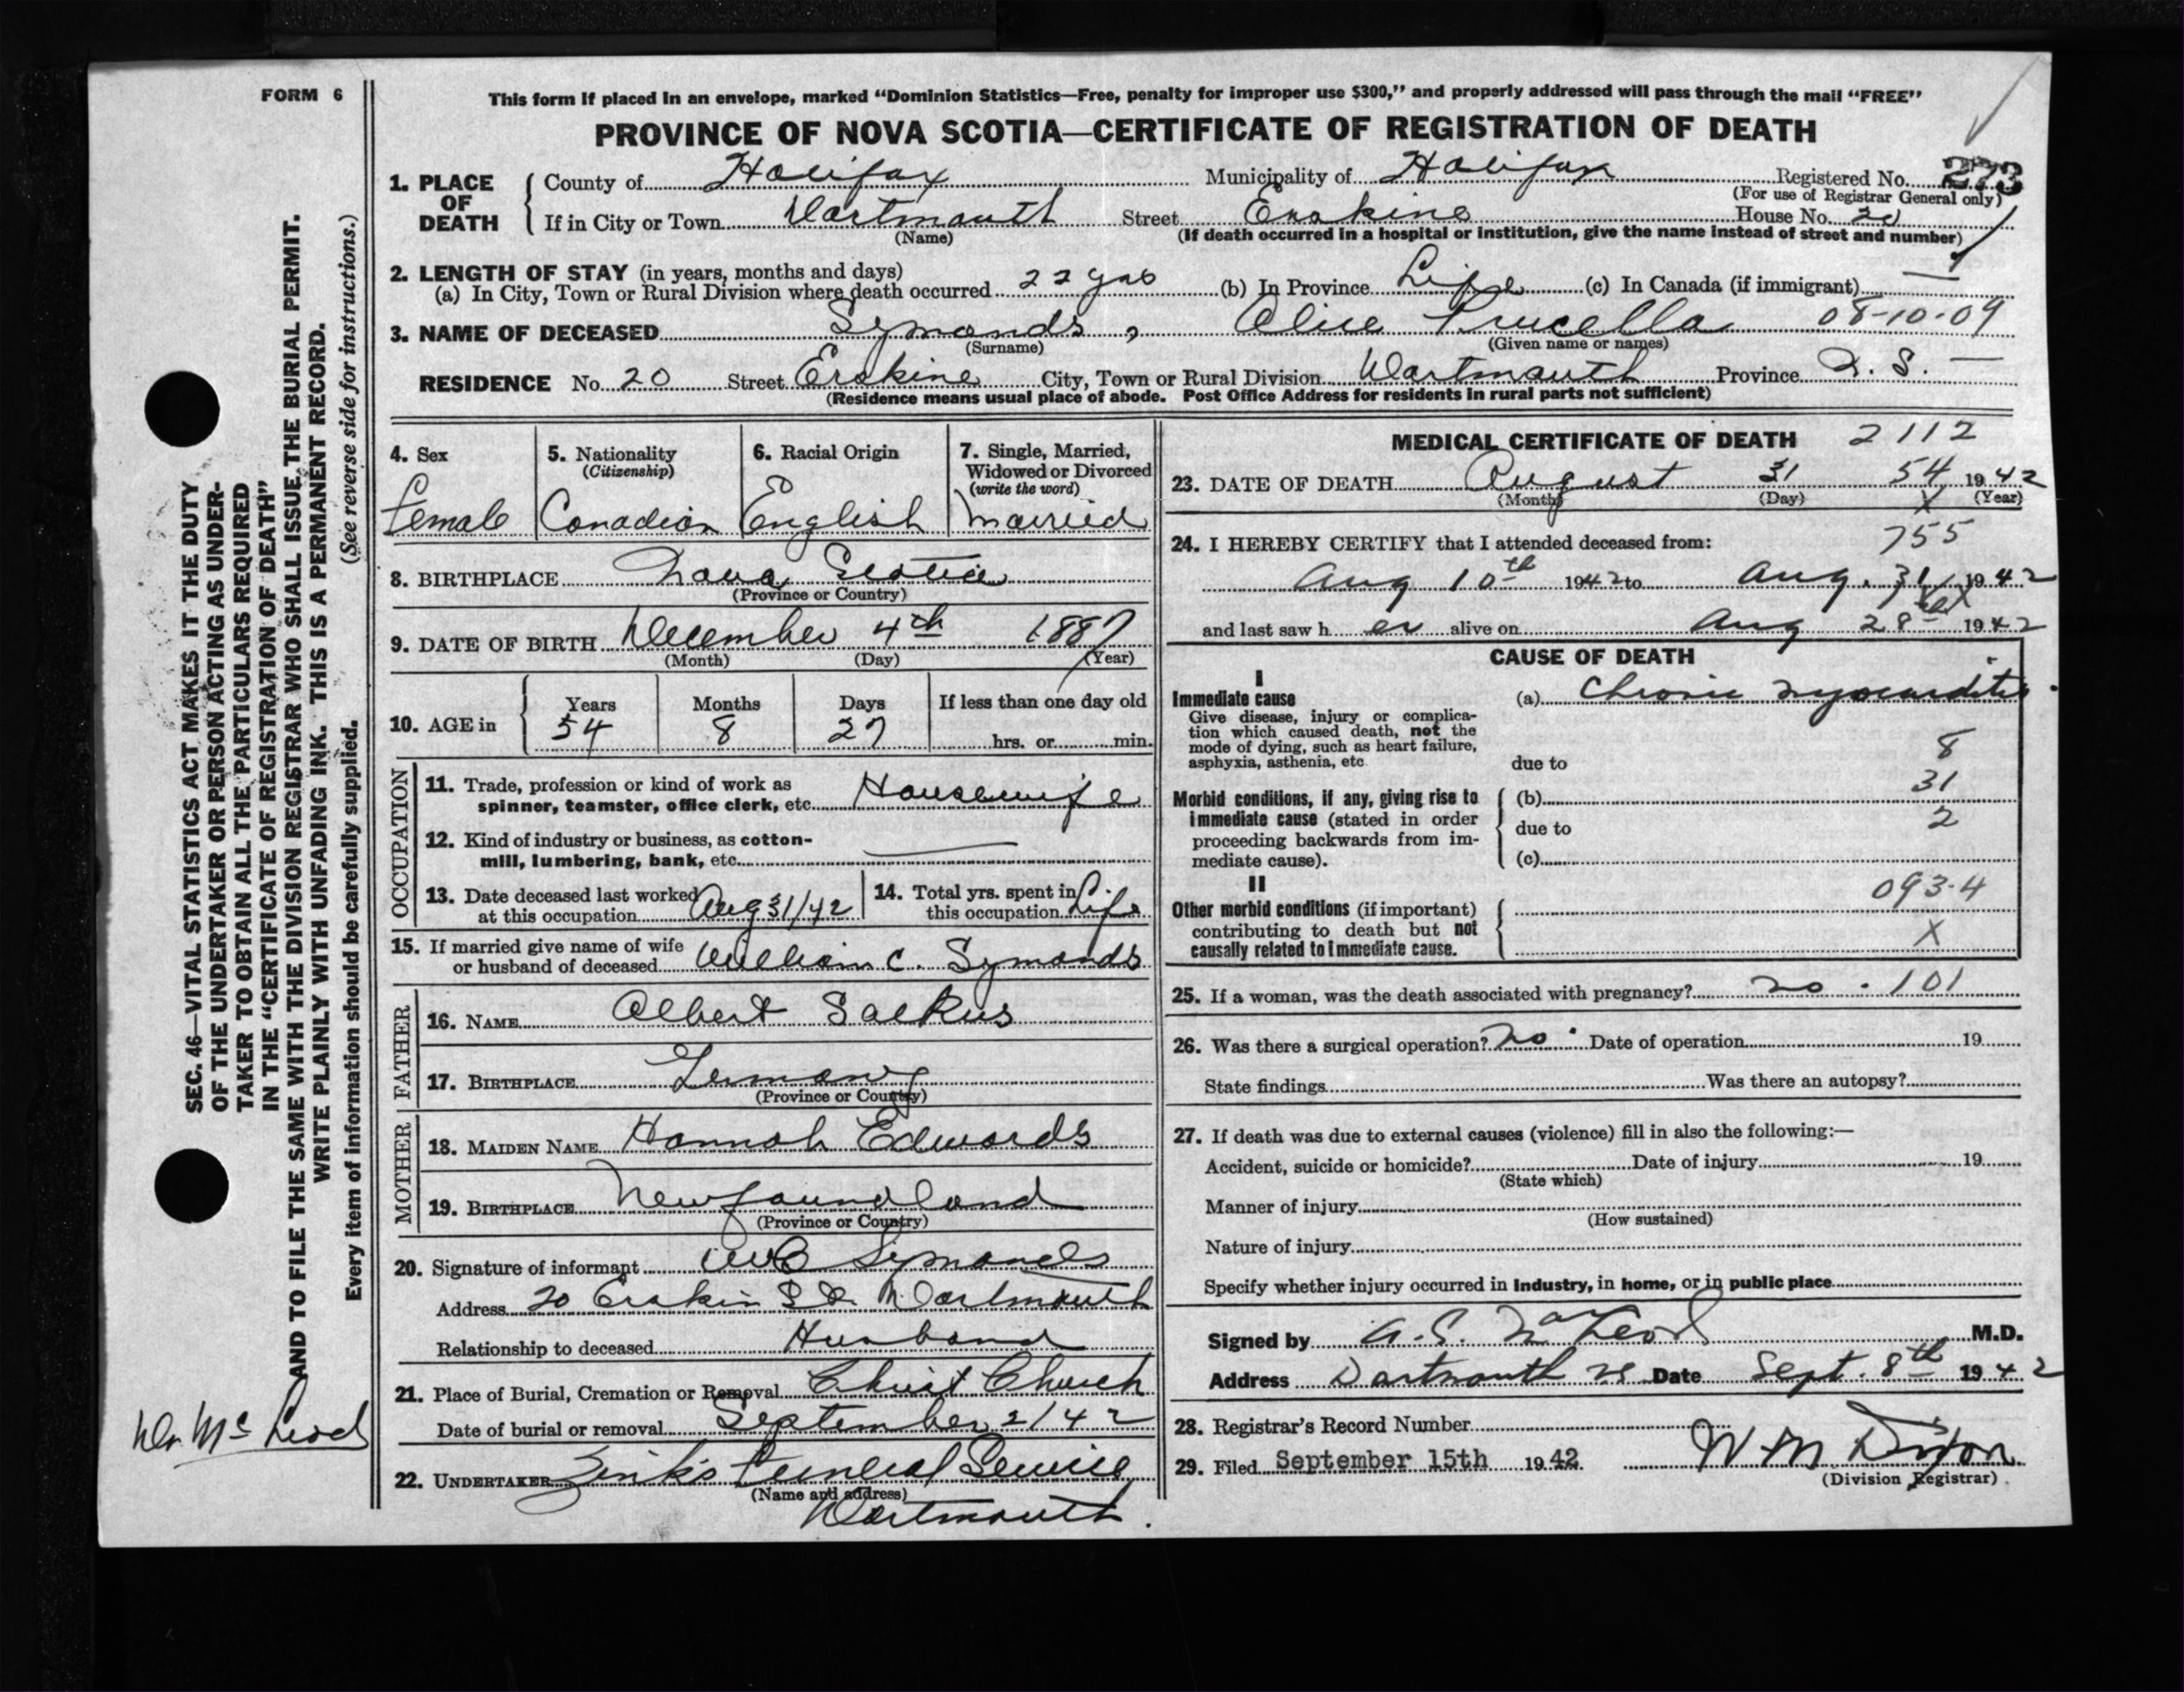 FORM 6
This form if placed in an envelope, marked “Dominion Statistics—Free, penalty for improper use $300,” and properly addressed will pass through the mail “FREE”
PROVINCE OF NOVA SCOTIA—CERTIFICATE OF REGISTRATION OF DEATH
1. PLACE OF DEATH { County of Halifax Municipality of Halifax Registered No. 273
(For use of Registrar General only)
If in City or Town Dartmouth Street Erskine House No. 20
(Name) (If death occurred in a hospital or institution, give the name instead of street and number)
2. LENGTH OF STAY (in years, months and days)
(a) In City, Town or Rural Division where death occurred 22 yrs (b) In Province Life (c) In Canada (if immigrant) —
3. NAME OF DECEASED Symonds, Alice 08-10-09
(Surname) (Given name or names)
RESIDENCE No. 20 Street Erskine City, Town or Rural Division Dartmouth Province N. S. —
(Residence means usual place of abode. Post Office Address for residents in rural parts not sufficient)
4. Sex Female
5. Nationality (Citizenship) Canadian
6. Racial Origin English
7. Single, Married, Widowed or Divorced (write the word) Married
8. BIRTHPLACE Nova Scotia
(Province or Country)
9. DATE OF BIRTH December 4th 1887
(Month) (Day) (Year)
10. AGE in { Years 54 Months 8 Days 27 If less than one day old
hrs. or min.
OCCUPATION
11. Trade, profession or kind of work as
spinner, teamster, office clerk, etc. Housewife
12. Kind of industry or business, as cotton-
mill, lumbering, bank, etc. —
13. Date deceased last worked
at this occupation Aug 31/42
14. Total yrs. spent in
this occupation Life
15. If married give name of wife
or husband of deceased William C. Symonds
FATHER
16. NAME Albert Saekus
17. BIRTHPLACE Germany
(Province or Country)
MOTHER
18. MAIDEN NAME Hannah Edwards
19. BIRTHPLACE Newfoundland
(Province or Country)
20. Signature of informant W C Symonds
Address 20 Erskin St. Dartmouth
Relationship to deceased Husband
21. Place of Burial, Cremation or Removal Christ Church
Date of burial or removal September 2/42
22. UNDERTAKER Zink's Funeral Service
(Name and address)
Dartmouth.
MEDICAL CERTIFICATE OF DEATH 2112
23. DATE OF DEATH August 31 54 1942
(Month) (Day) X (Year)
24. I HEREBY CERTIFY that I attended deceased from: 755
Aug 10th 1942 to Aug. 31 1942
and last saw her alive on Aug 28th 1942
CAUSE OF DEATH
I
Immediate cause (a) Chronic myocarditis.
Give disease, injury or complica-
tion which caused death, not the
mode of dying, such as heart failure,
asphyxia, asthenia, etc. due to 8
Morbid conditions, if any, giving rise to (b) 31
immediate cause (stated in order due to 2
proceeding backwards from im-
mediate cause). (c)
II 093.4
Other morbid conditions (if important)
contributing to death but not X
causally related to immediate cause.
25. If a woman, was the death associated with pregnancy? no . 101
26. Was there a surgical operation? no . Date of operation 19
State findings Was there an autopsy?
27. If death was due to external causes (violence) fill in also the following:—
Accident, suicide or homicide? Date of injury 19
(State which)
Manner of injury
(How sustained)
Nature of injury
Specify whether injury occurred in industry, in home, or in public place
Signed by A. S. McLeod M.D.
Address Dartmouth NS Date Sept. 8th 1942
28. Registrar's Record Number
29. Filed September 15th 1942 W M Dixon
(Division Registrar)
SEC. 46—VITAL STATISTICS ACT MAKES IT THE DUTY
OF THE UNDERTAKER OR PERSON ACTING AS UNDER-
TAKER TO OBTAIN ALL THE PARTICULARS REQUIRED
IN THE “CERTIFICATE OF REGISTRATION OF DEATH”
AND TO FILE THE SAME WITH THE DIVISION REGISTRAR WHO SHALL ISSUE THE BURIAL PERMIT.
WRITE PLAINLY WITH UNFADING INK. THIS IS A PERMANENT RECORD.
Every item of information should be carefully supplied. (See reverse side for instructions.)
Dr. McLeod